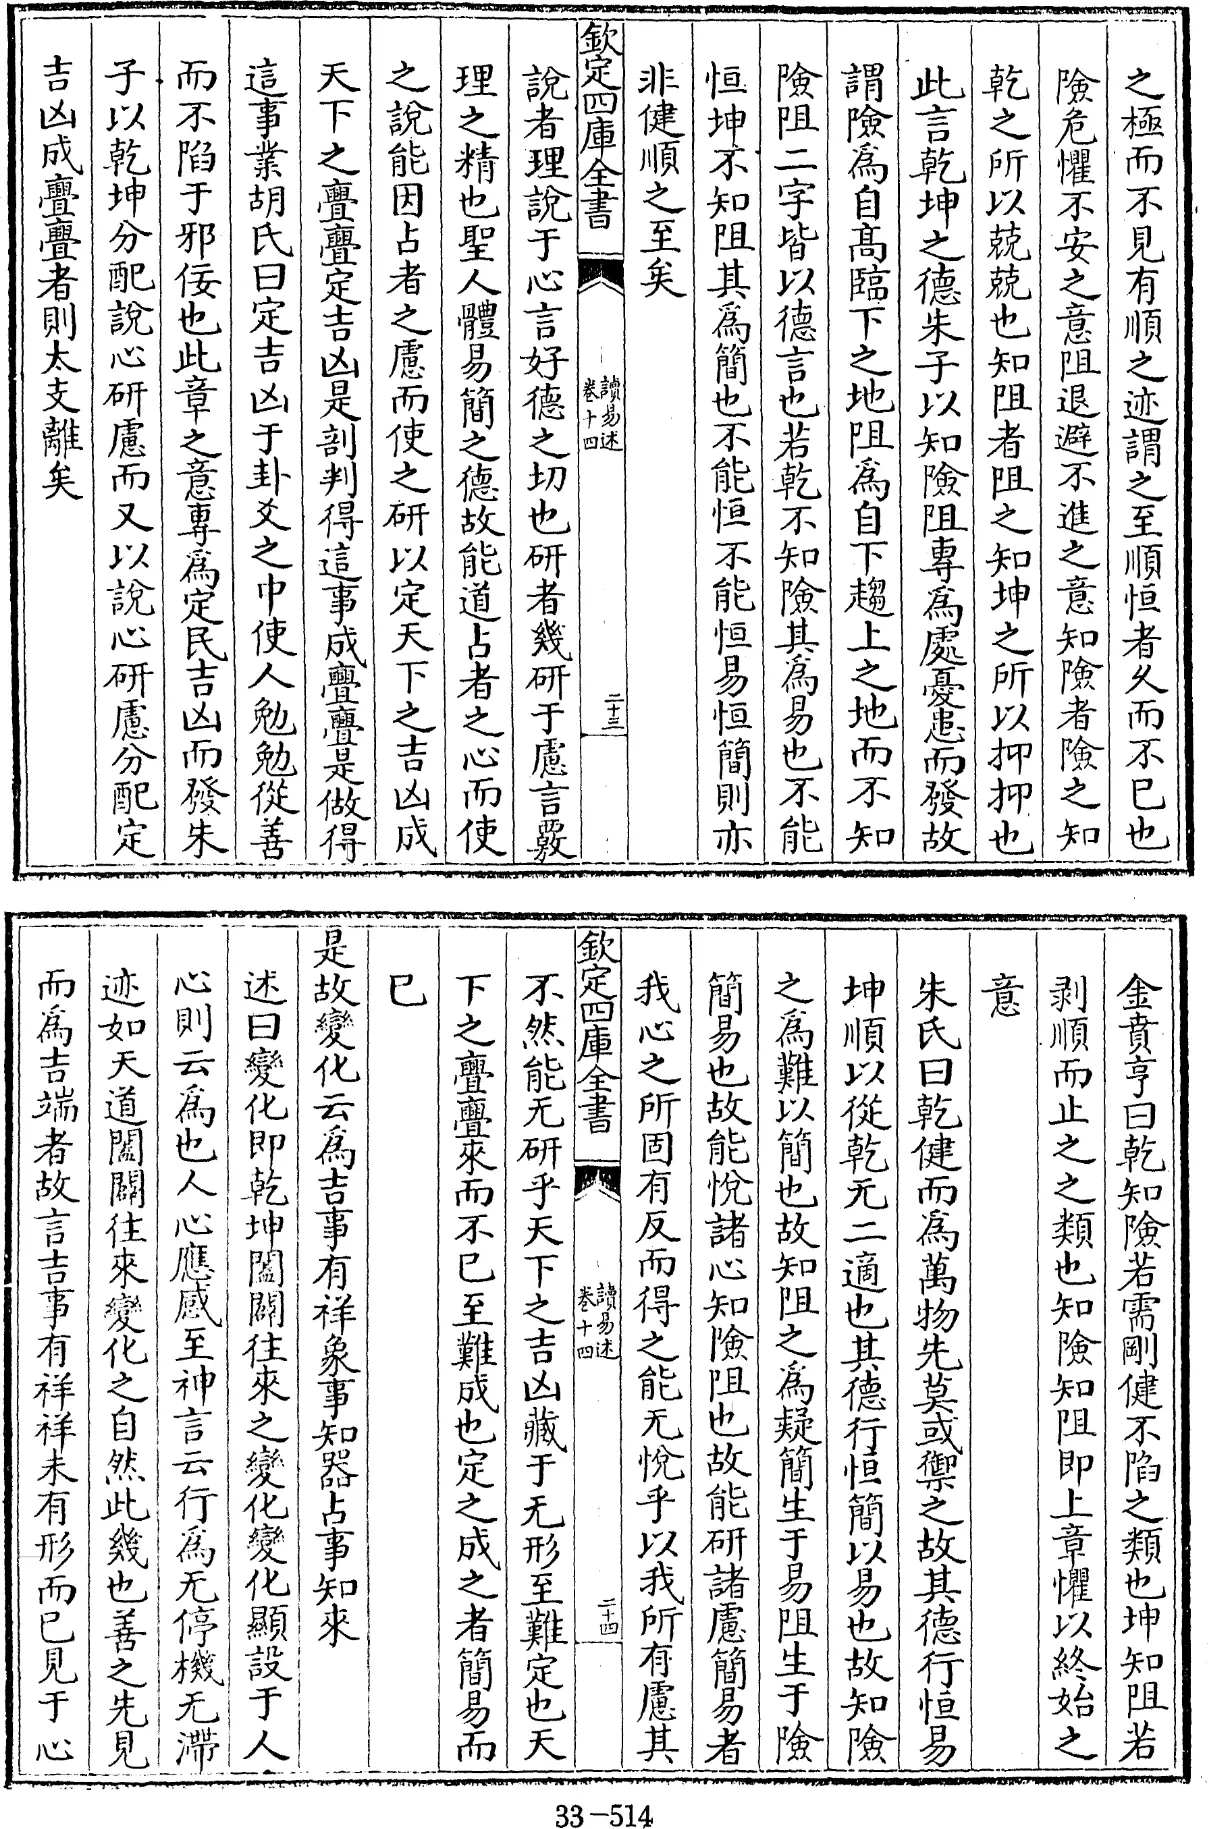 之極而不見有順之迹謂之至順恒者久而不已也
險危懼不安之意阻退避不進之意知險者險之知
乾之所以兢兢也知阻者阻之知坤之所以抑抑也
此言乾坤之德朱子以知險阻專為處憂患而發故
謂險為自髙臨下之地阻為自下趨上之地而不知
險阻二字皆以德言也若乾不知險其為易也不能
恒坤不知阻其為簡也不能恒不能恒易恒簡則亦
非健順之至矣
欽定四庫全書
讀易述
卷十四
二十三
說者理說于心言好德之切也研者幾研于慮言覈
理之精也聖人體易簡之德故能道占者之心而使
之說能因占者之慮而使之研以定天下之吉凶成
天下之亹亹定吉凶是剖判得這事成亹亹是做得
這事業胡氏曰定吉凶于卦爻之中使人勉勉從善
而不陷于邪佞也此章之意專為定民吉凶而發朱
子以乾坤分配說心研慮而又以說心研慮分配定
吉凶成亹亹者則太支離矣
金賁亨曰乾知險若需剛健不陷之類也坤知阻若
剥順而止之之類也知險知阻即上章懼以終始之
意
朱氏曰乾健而為萬物先莫或禦之故其德行恒易
坤順以從乾无二適也其德行恒簡以易也故知險
之為難以簡也故知阻之為疑簡生于易阻生于險
簡易也故能悅諸心知險阻也故能研諸慮簡易者
我心之所固有反而得之能无悅乎以我所有慮其
欽定四庫全書
讀易述
卷十四
二十四
不然能无研乎天下之吉凶藏于无形至難定也天
下之亹亹來而不已至難成也定之成之者簡易而
已
是故變化云為吉事有祥象事知器占事知來
述曰變化即乾坤闔闢往來之變化變化顯設于人
心則云為也人心應感至神言云行為无停機无滯
迹如天道闔闢往來變化之自然此幾也善之先見
而為吉端者故言吉事有祥祥未有形而已見于心
33-514